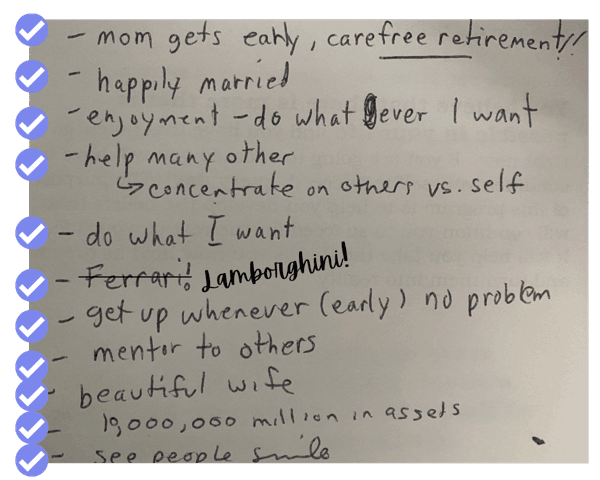 - mom gets early, carefree retirement!!
- happily married
- enjoyment - do what ever I want
- help many other
↳ concentrate on others vs. self
- do what I want
- Ferrari! Lamborghini!
- get up whenever (early) no problem
- mentor to others
- beautiful wife
- 10,000,000 million in assets
- see people smile